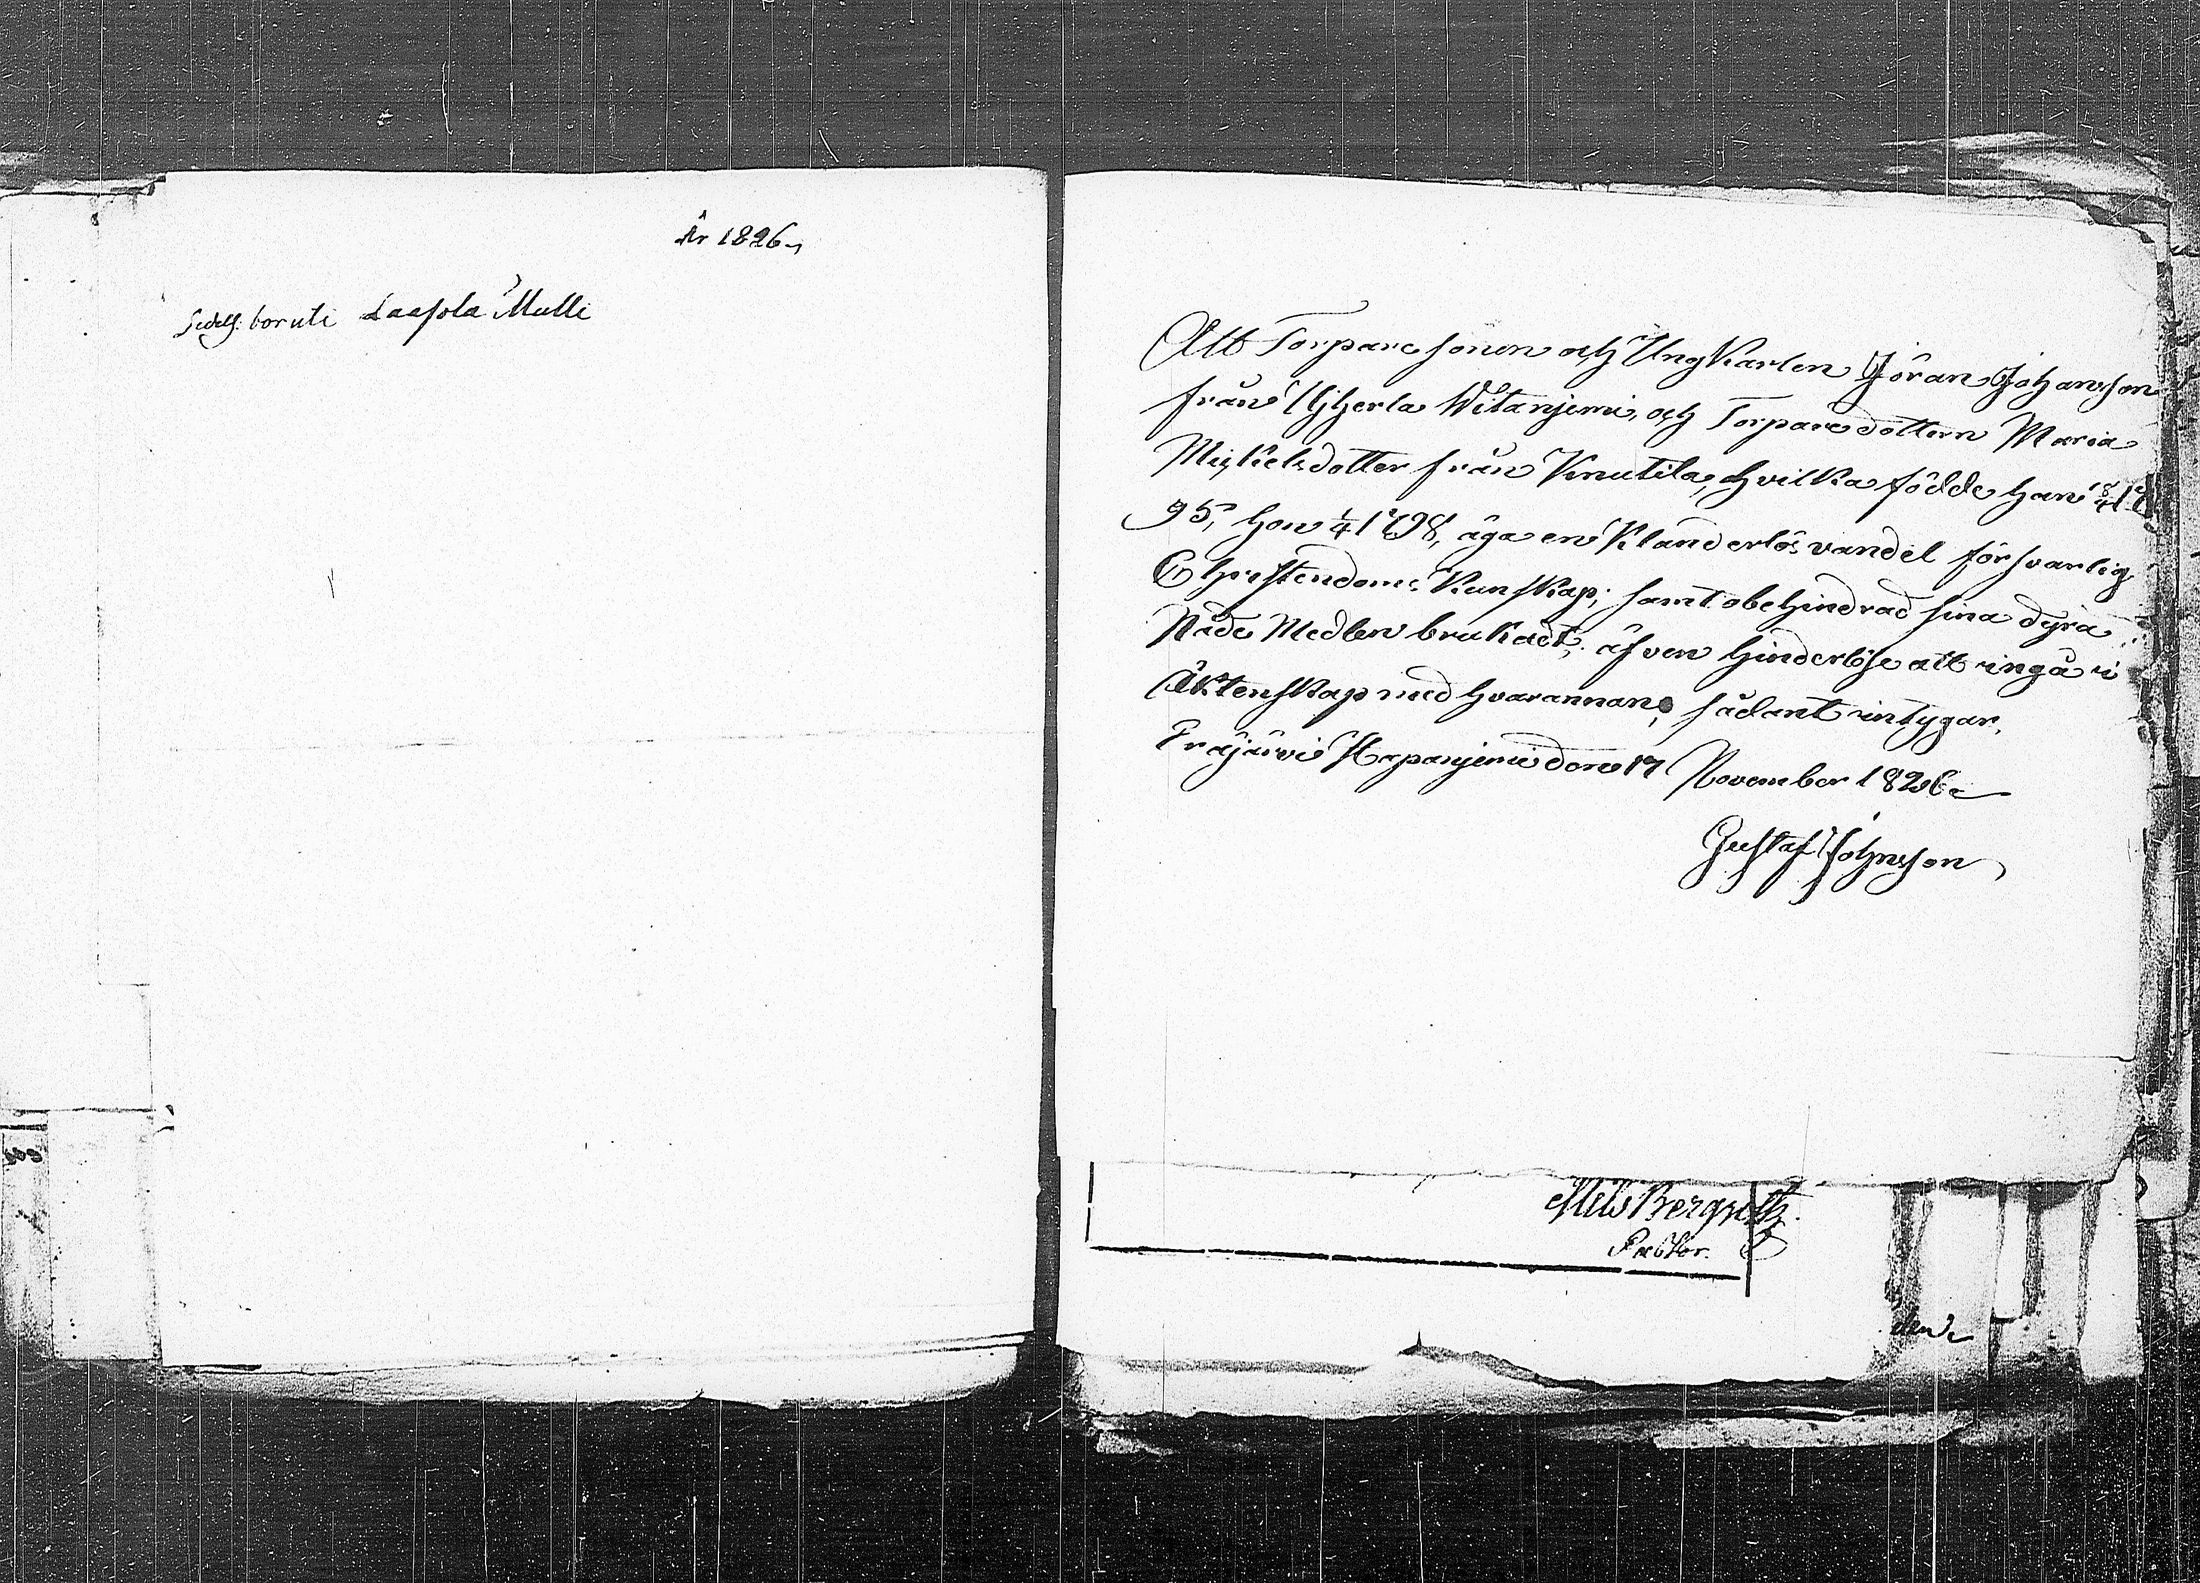 År 1826.
boruti Laasola Mulli
Att Torpare sonen och UngKarlen Jöran Johansson
från Ylistarla Witaniemi, och Torparedottern Maria
Mickelsdotter från Knutila, hvilka födde han 8/4 17
95, hon 1/4 1798, äga en Klanderlös vandel försvarlig
Christendoms Kunskap; samt obehindrad sina dyra
Nåde Medlen brukadt; äfven hinderlöse att ingå i
Äktenskap med hvarannan, sådant intygar,
Eräjärvi Hapaniemi den 17 November 1826
Gustaf Johnsson
Nils Bergroth.
Pastor.
den